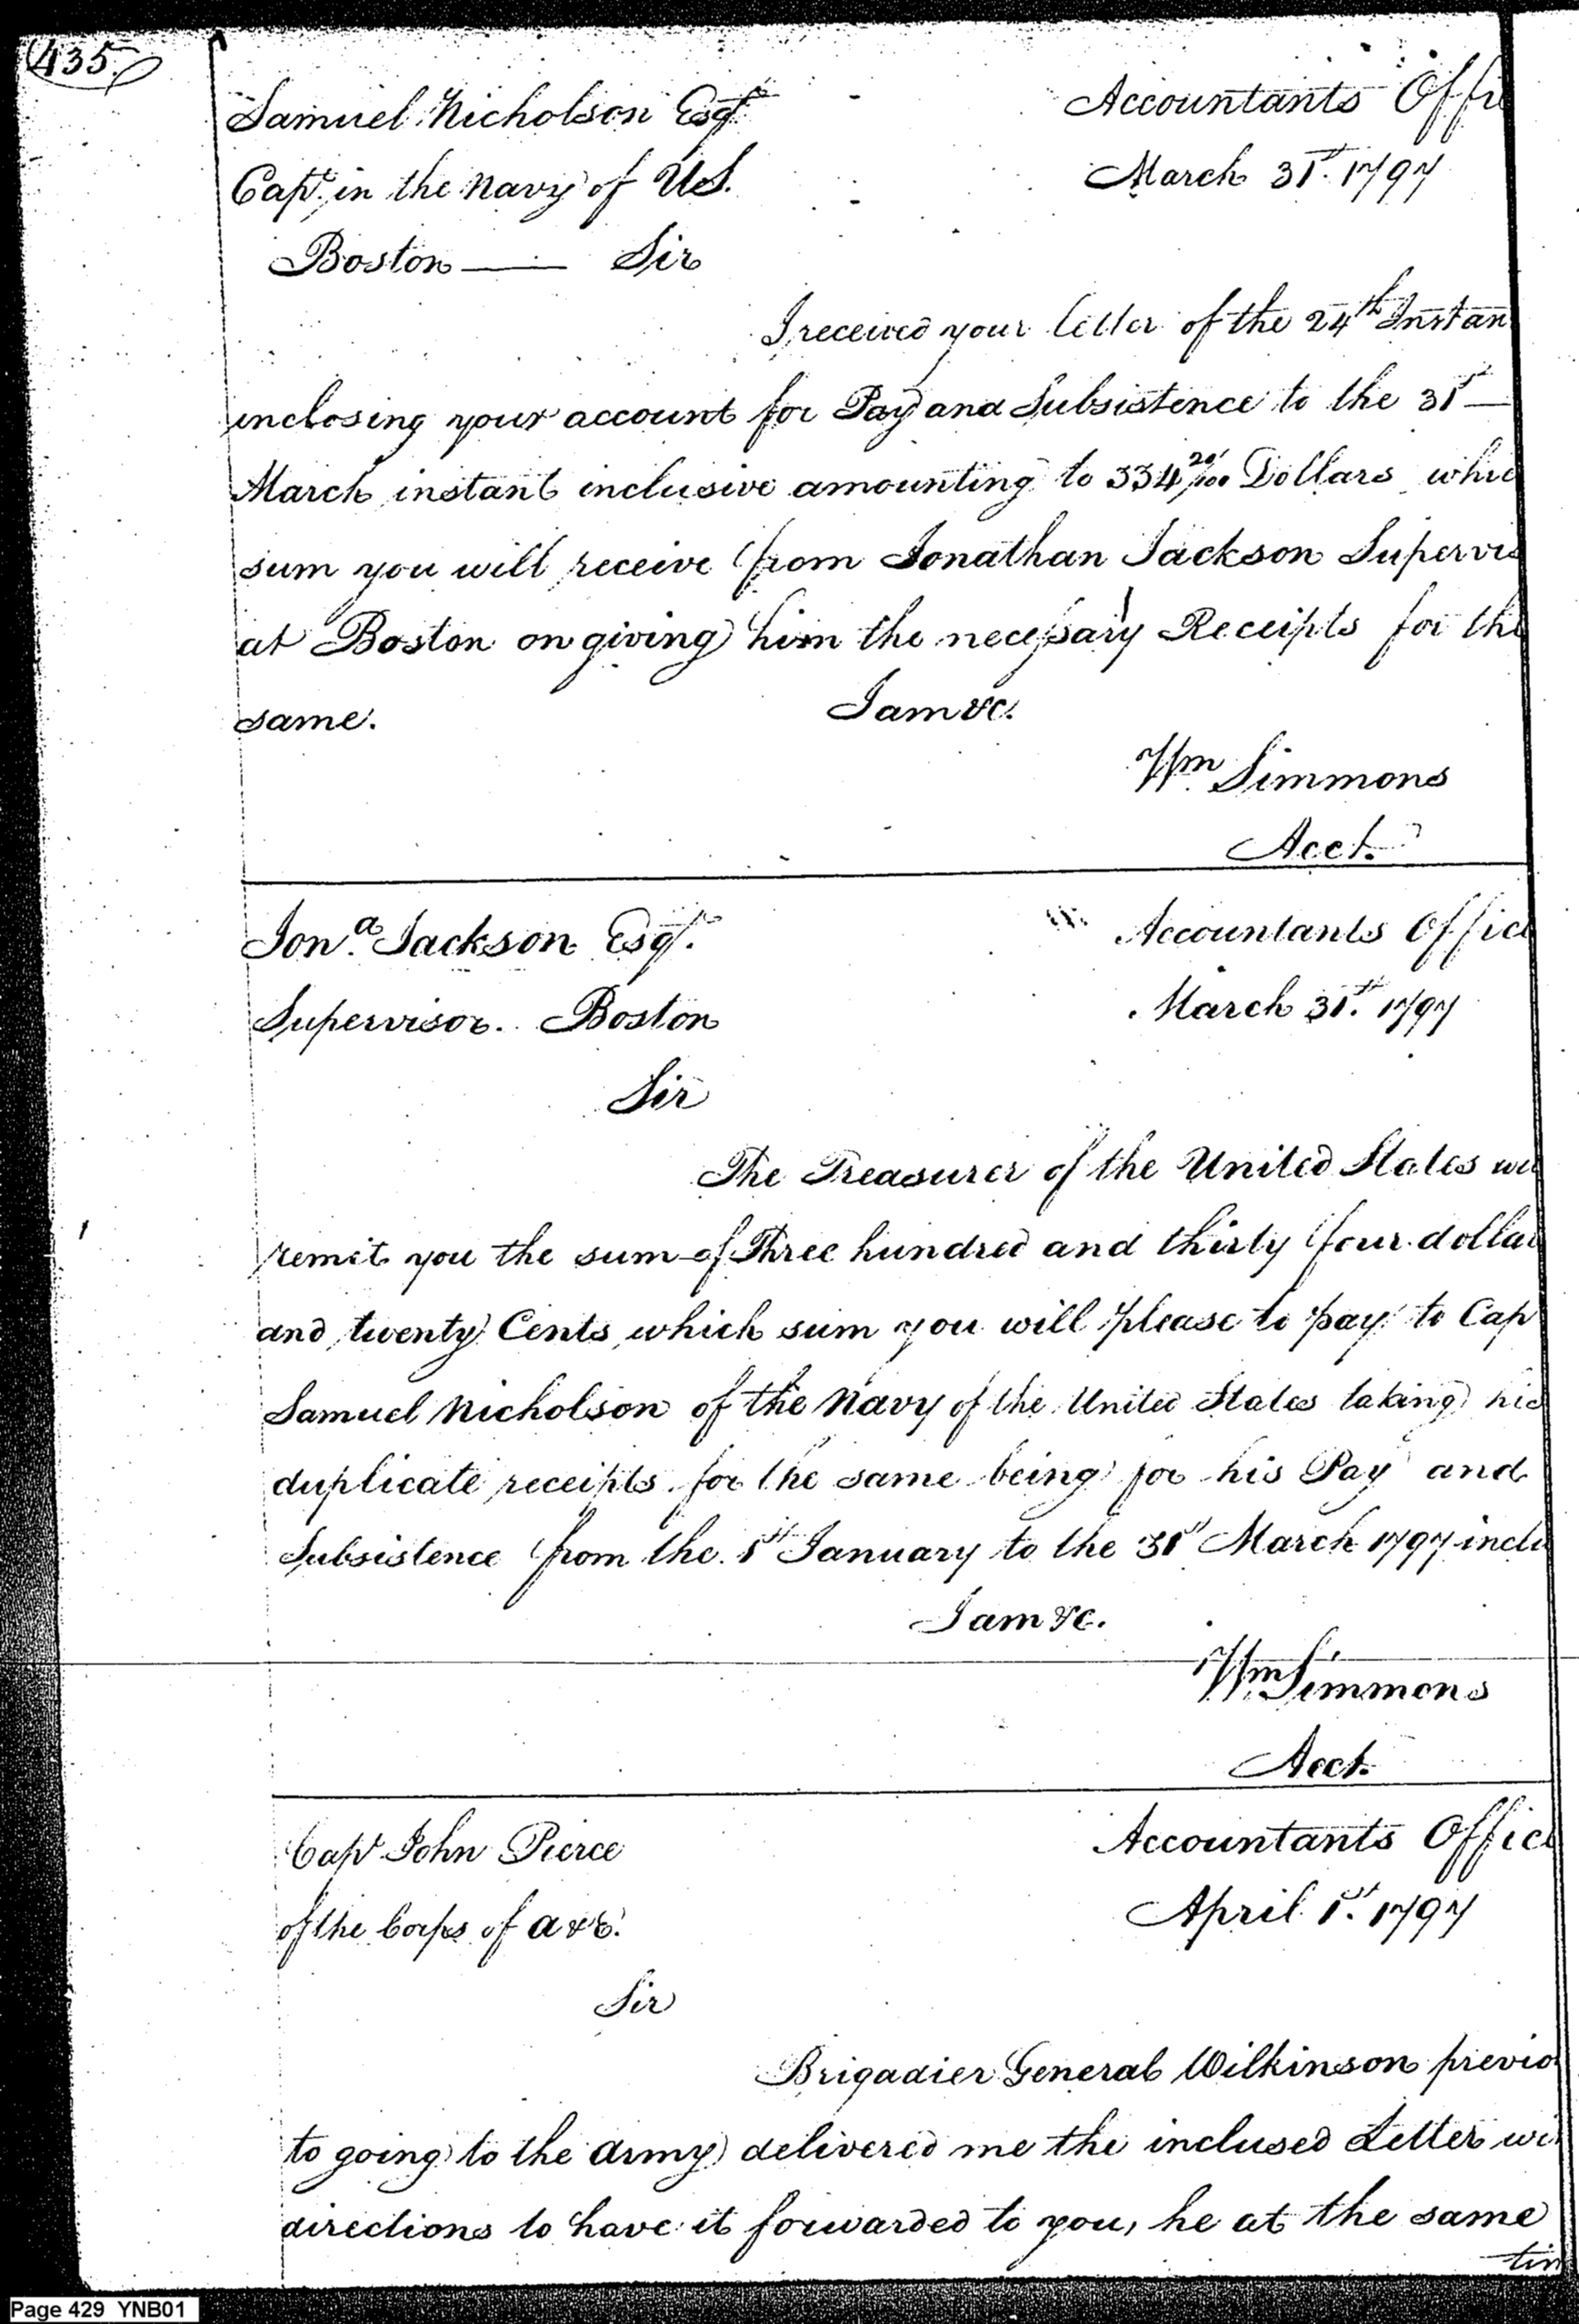 435.
Samuel Nicholson Esqr. Accountants Offi
Capt. in the Navy of U.S. March 31st. 1797
Boston — Sir
I received your letter of the 24th Instan
inclosing your account for Pay and Subsistence to the 31st —
March instant inclusive amounting to 334 20/100 Dollars whic
sum you will receive from Jonathan Jackson Supervis
at Boston on giving him the necessary Receipts for the
same. I am &c.
Wm Simmons
Acct.
Jona. Jackson Esqr. Accountants Office
Supervisor. Boston March 31st. 1797
Sir
The Treasurer of the United States wil
remit you the sum of Three hundred and thirty four dollar
and twenty Cents which sum you will please to pay to Cap
Samuel Nicholson of the Navy of the United States taking his
duplicate receipts for the same being for his Pay and
Subsistence from the 1st January to the 31st March 1797 inclu
I am &c.
Wm Simmons
Acct.
Capt John Pierce Accountants Office
of the Corps of A & E. April 1st. 1797
Sir
Brigadier General Wilkinson previo
to going to the Army delivered me the inclused Letter wi
directions to have it forwarded to you, he at the same
tim
Page 429 YNB01